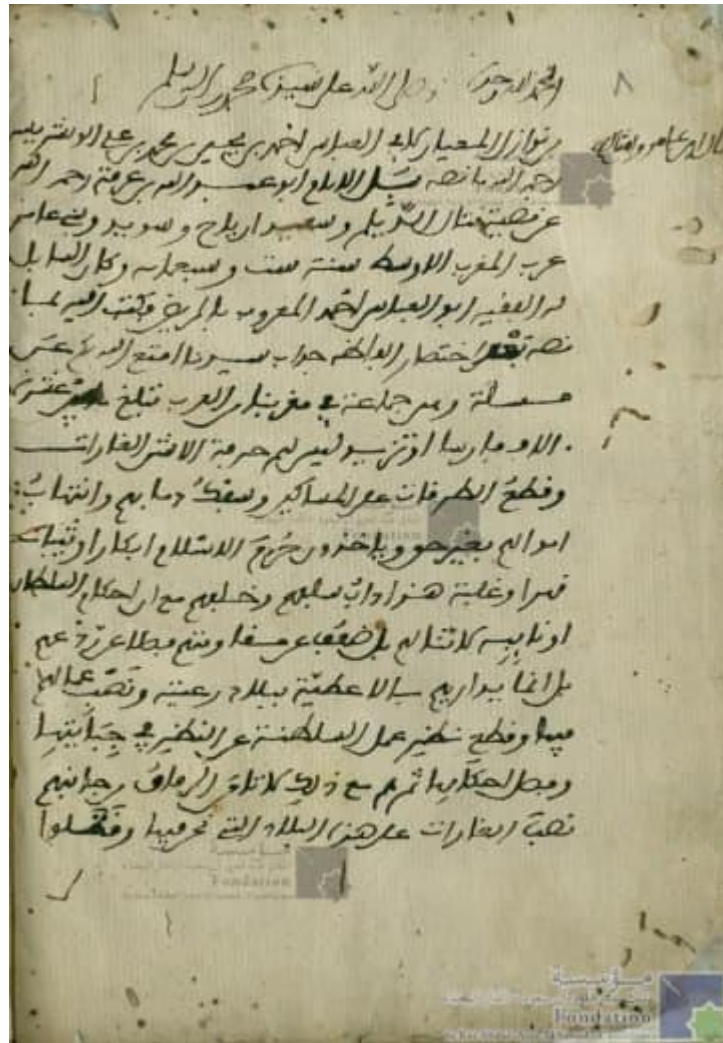 الحمد لله وحده وصلى الله على سيدنا محمد وآله وسلم
من نوازل المعيار لابي العباس احمد بن يحيى بن محمد بن علي الونشريسي
رحمه الله ما نصه سئل الامام ابو عبد الله بن عرفة رحمه الله
عن قضية قتال الديلم وسعيد ارياح وسويد وبني عامر
عرب المغرب الاوسط سنة ست وسبعمايه وكان السايل
له الفقيه ابو العباس احمد المعروف بالمريض فكتب اليه بما
نصه اختصار جواب سيدنا امتع الله به عن
مسئلة وهي جماعة في مغربنا من العرب تبلغ
الاف فارسا او تزيد ليس لهم حرفة الا شن الغارات
وقطع الطرقات على المساكين وسفك دمايهم وانتهاب
اموالهم بغير حق وياخذون حرم الاسلام ابكارا وثيبات
قهرا وغلبة هذا داب سلفهم وخلفهم مع ان احكام السلطان
او نايبه لا تنالهم بل ضعف عن مقاومتهم فضلا عن ردعهم
بل انما يداريهم بالاعطية ببلاد رعيته ونصب عمالهم
فيها وقطع نظر عمل السلطنة عن النظر في جبايتها
وفصل احكامها ثم هم مع ذلك لا تامن الرفاق من جانبهم
نصب الغارات على هذه البلاد التي نحن فيها وقتلوا